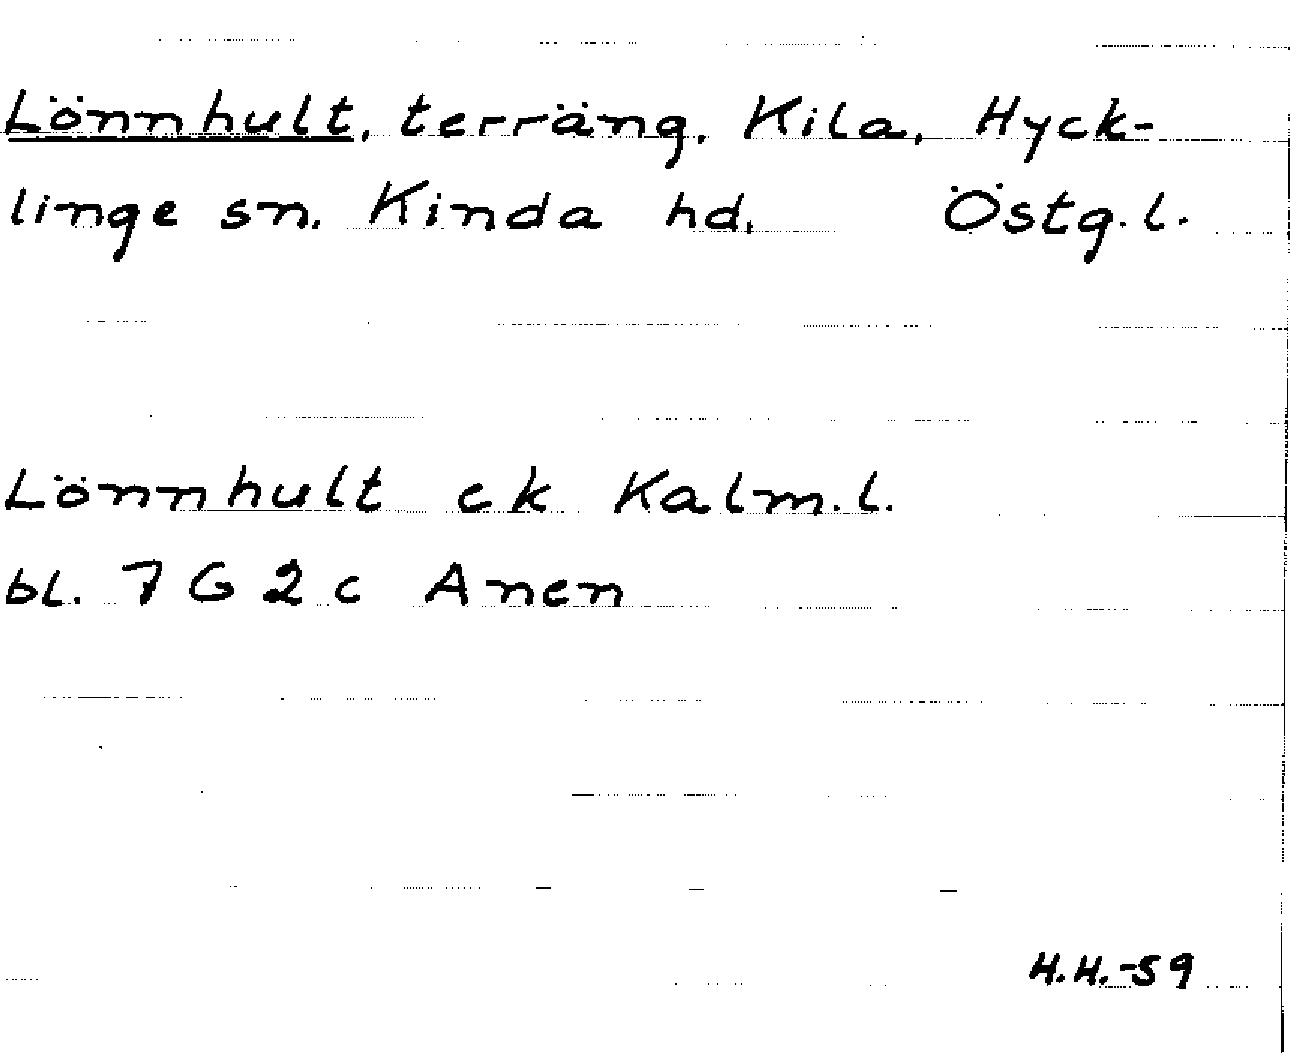 Lönnhult, terräng, Kila, Hyck-
linge sn. Kinda hd. Östg.l.
Lönnhult ck Kalm.l.
bl. 7 G 2 c Anen
H.H.-59